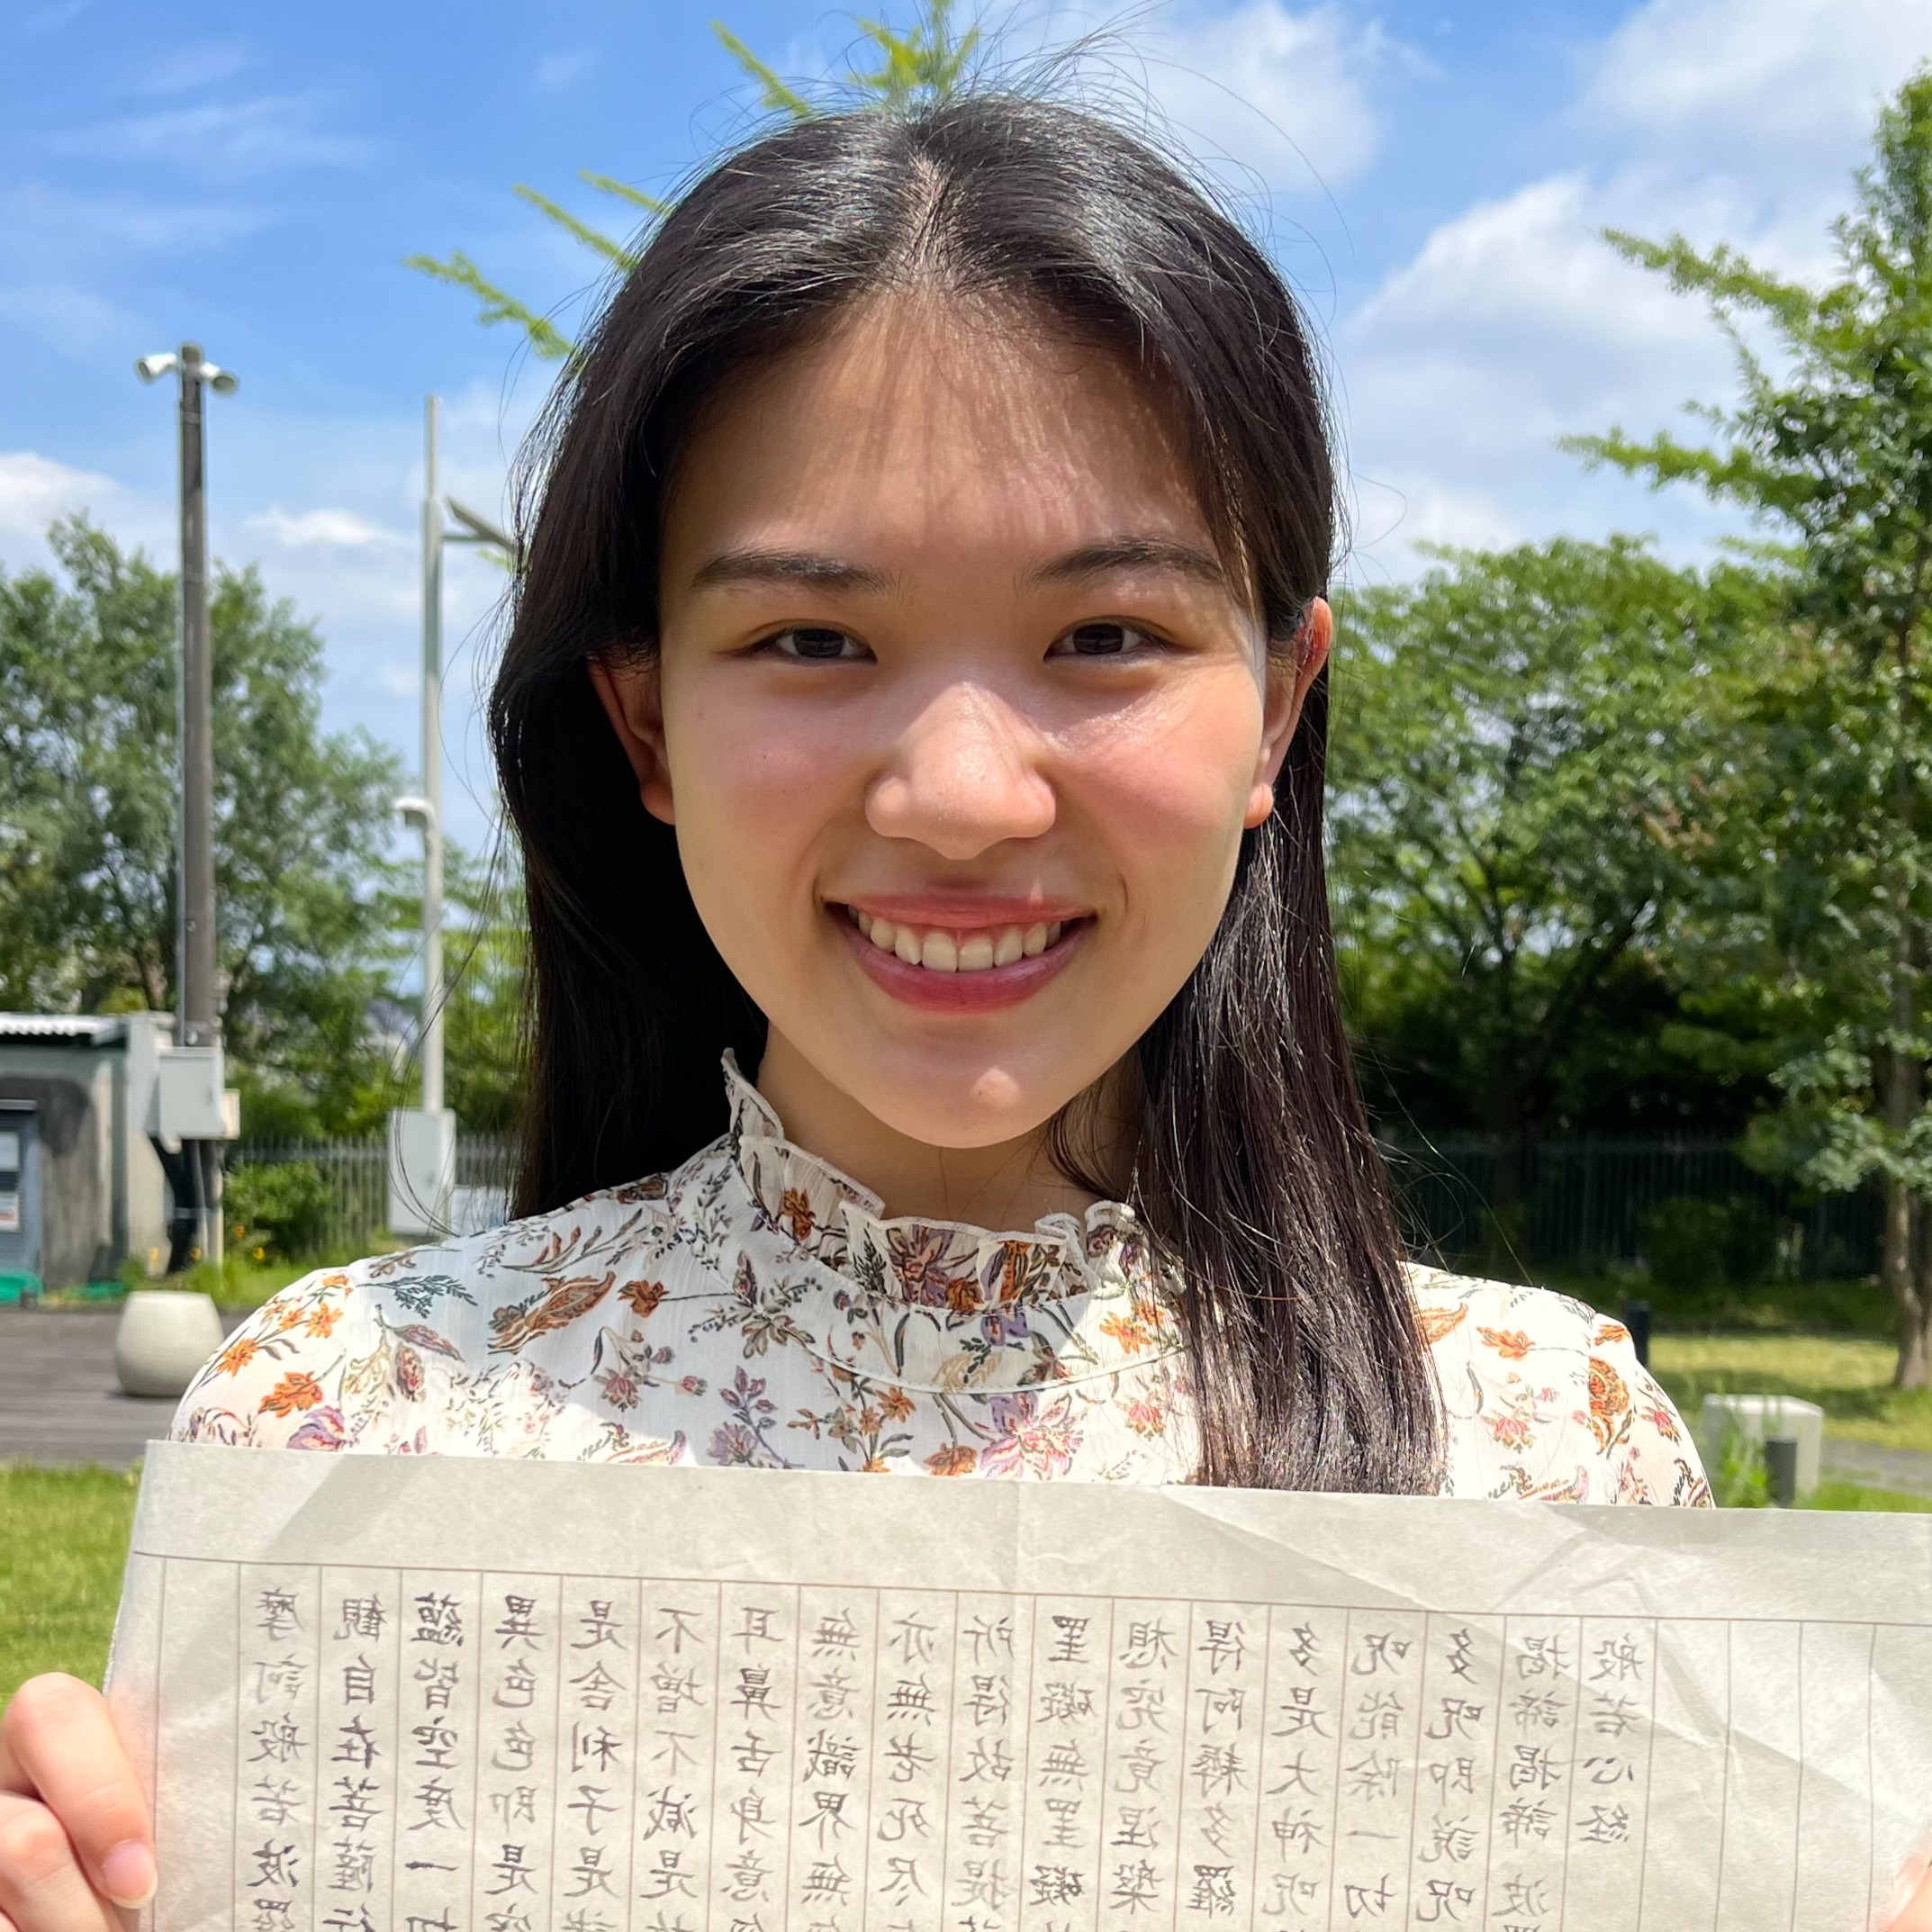 摩訶般若波羅
観自在菩薩行
蘊皆空度一切
異色色即是空
是舎利子是
不増不減是
耳鼻舌身意
無意識界無
亦無老死尽
所得故菩提
罣礙無罣礙
想究竟涅槃
得阿耨多羅
多是大神呪
呪能除一切
多呪即説呪
掲諦掲諦波
般若心経